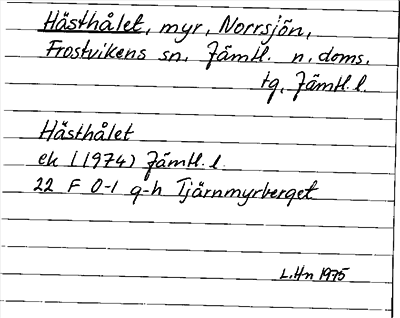 Hästhålet, myr, Norrsjön,
Frostvikens sn, Jämtl. n. doms.
tg, Jämtl. l.
Hästhålet
ek (1974) Jämtl. l.
22 F 0-1 g-h Tjärnmyrberget
L.Hn 1975